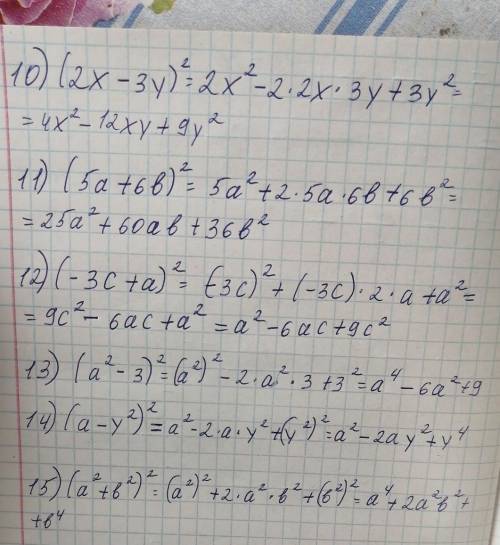 10) (2x - 3y)² = 2x² - 2·2x·3y + 3y² =
= 4x² - 12xy + 9y²
11) (5a + 6в)² = 5a² + 2·5a·6в + 6в² =
= 25a² + 60aв + 36в²
12) (-3c + a)² = (-3c)² + (-3c)·2·a + a² =
= 9c² - 6ac + a² = a² - 6ac + 9c²
13) (a² - 3)² = (a²)² - 2·a²·3 + 3² = a⁴ - 6a² + 9
14) (a - y²)² = a² - 2·a·y² + (y²)² = a² - 2ay² + y⁴
15) (a² + в²)² = (a²)² + 2·a²·в² + (в²)² = a⁴ + 2a²в² +
+ в⁴